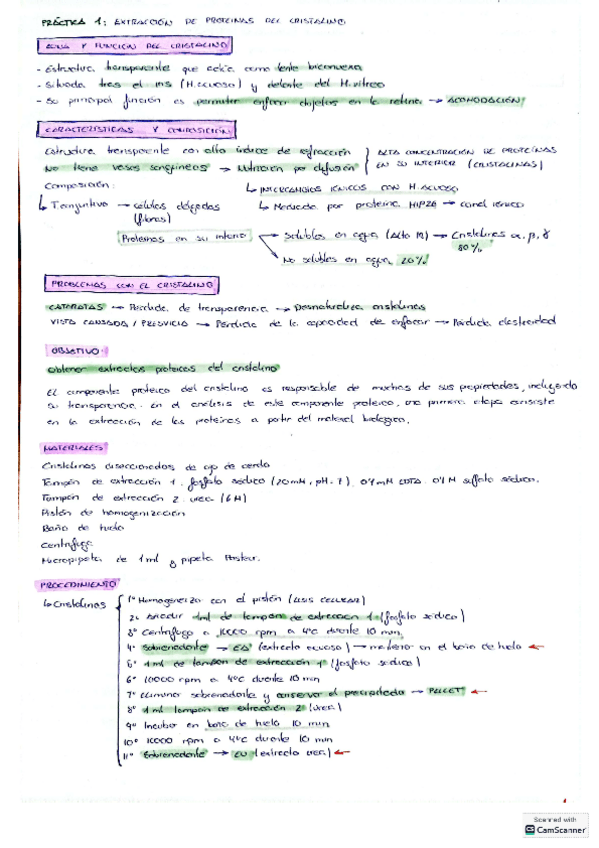 PRÁCTICA 1: EXTRACCIÓN DE PROTEÍNAS DEL CRISTALINO
ZONA Y FUNCIÓN DEL CRISTALINO
- Estructura transparente que actúa como lente biconvexa
- Situada tras el iris (H. acuoso) y delante del H. vítreo
- Su principal función es permitir enfocar objetos en la retina → ACOMODACIÓN
CARACTERÍSTICAS Y COMPOSICIÓN
Estructura transparente con alto índice de refracción } ALTA CONCENTRACIÓN DE PROTEÍNAS
No tiene vasos sanguíneos → Nutrición por difusión } EN SU INTERIOR (CRISTALINAS)
Composición: ↳ INTERCAMBIOS IÓNICOS CON H. ACUOSO
↳ T. conjuntivo → células alargadas ↳ Mediada por proteína MIP26 → canal iónico
(fibras)
Proteínas en su interior → Solubles en agua (Alto M) → Cristalinas α, β, γ
80%
→ No solubles en agua 20%
PROBLEMAS CON EL CRISTALINO
CATARATAS → Pérdida de transparencia → Desnaturaliza cristalinas
VISTA CANSADA / PRESVICIA → Pérdida de la capacidad de enfocar → Pérdida elasticidad
OBJETIVO
Obtener extractos proteicos del cristalino
El componente proteico del cristalino es responsable de muchas de sus propiedades, incluyendo
su transparencia. En el análisis de este componente proteico, una primera etapa consiste
en la extracción de las proteínas a partir del material biológico.
MATERIALES
Cristalinos diseccionados de ojo de cerdo
Tampón de extracción 1: fosfato sódico (20mM, pH 7), 0'1mM EDTA 0'1M sulfato sódico.
Tampón de extracción 2: urea (6M)
Pistón de homogenización
Baño de hielo
Centrífuga
Micropipeta de 1ml y pipeta Pasteur.
PROCEDIMIENTO
↳ Cristalinos { 1º Homogeneizo con el pistón (LISIS CELULAR)
2º Añadir 1ml de tampón de extracción 1 (fosfato sódico)
3º Centrifugo a 10000 rpm a 4ºC durante 10 min
4º Sobrenadante → EA (extracto acuoso) → mantiene en el baño de hielo ←
5º 1 ml de tampón de extracción 1 (fosfato sódico)
6º 10000 rpm a 4ºC durante 10 min
7º Elimino sobrenadante y conservo el precipitado → PELLET ←
8º 1 ml tampón de extracción 2 (urea)
9º Incubar en baño de hielo 10 min
10º 10000 rpm a 4ºC durante 10 min
11º Sobrenadante → EU (extracto urea) ←
Scanned with
CS CamScanner